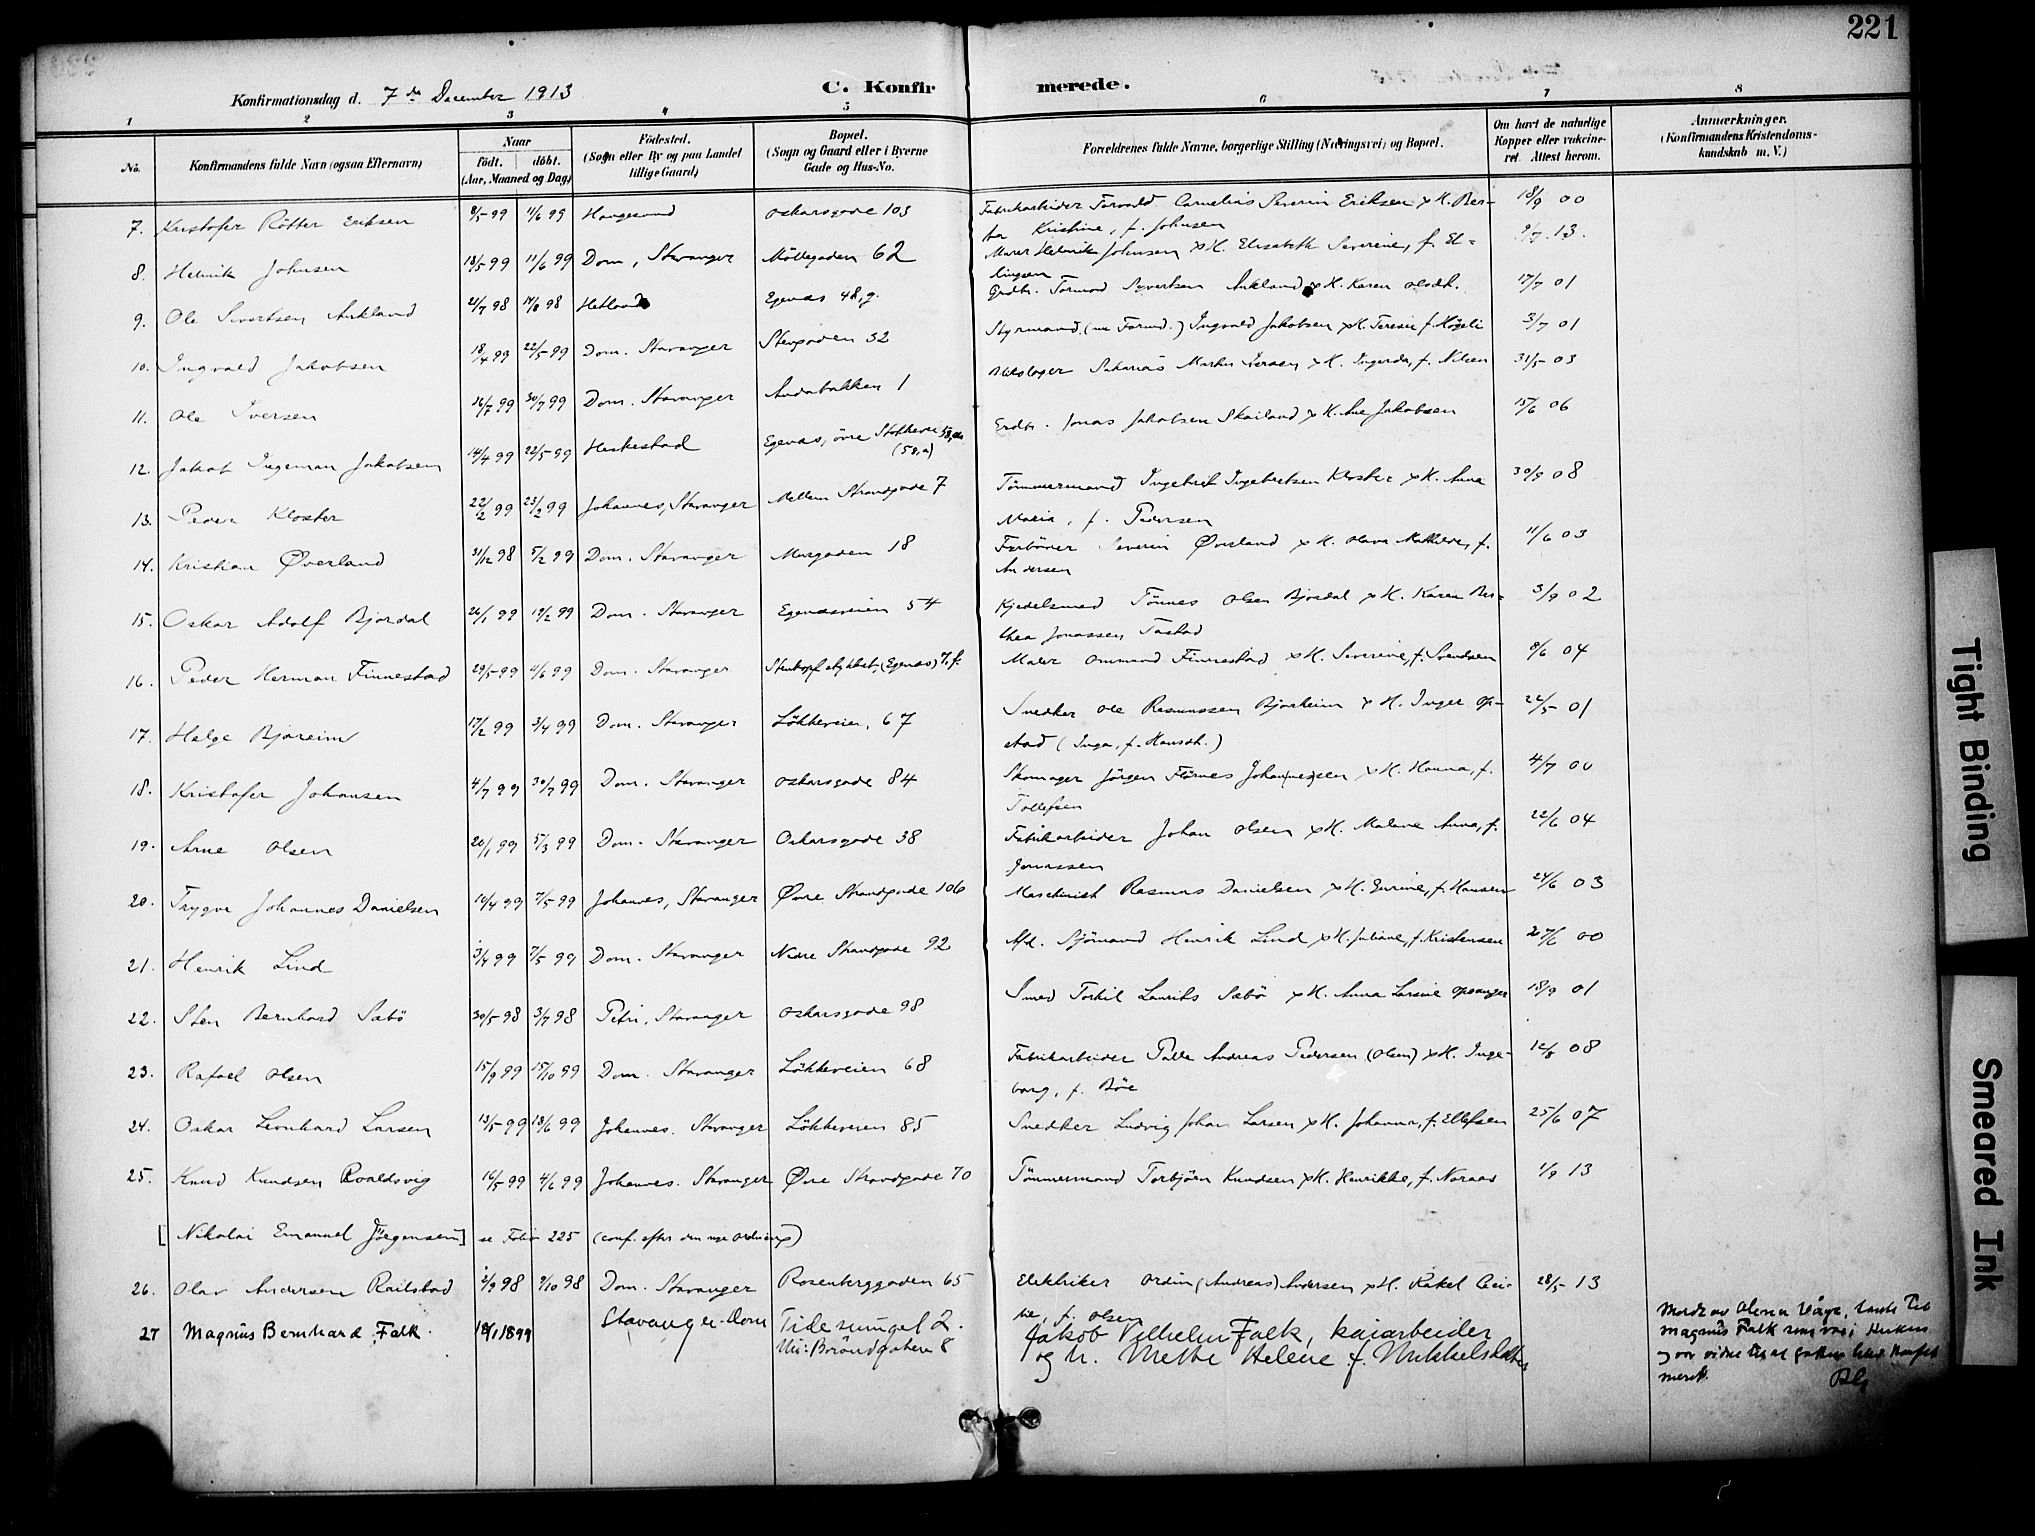 221
Konfirmationsdag d. 7de December 1913
C. Konfirmerede.
1 2 3 4 5 6 7 8
No. Konfirmandens fulde Navn (ogsaa Efternavn) Naar födt. döbt. (Aar, Maaned og Dag) Födested. (Sogn eller By og paa Landet tillige Gaard) Bopæl. (Sogn og Gaard eller i Byerne Gade og Hus-No. Forældrenes fulde Navne, borgerlige Stilling (Næringsvei) og Bopæl. Om havt de naturlige Kopper eller vakcineret. Attest herom. Anmærkninger. (Konfirmandens Kristendomskundskab m. V.)
7. Kristofer Rötter Eriksen 9/5 99 11/6 99 Haugesund Oskarsgade 103 Fabrikarbeider Torvald Cornelius Severin Eriksen x H. Ber- 18/9 00
tha Kristine, f. Johnsen
8. Henrik Johnsen 18/5 99 11/6 99 Dom, Stavanger Möllegaden 62 Murer Henrik Johnsen x H. Elisabeth Severine, f. El- 9/7 13.
lingsen
9. Ole Sivertsen Aukland 21/7 98 14/8 98 Hetland Egenæs 48,g. Grdbr. Tormod Sivertsen Aukland x H. Karen Olsdt. 17/7 01
10. Ingvald Jakobsen 18/4 99 22/5 99 Dom. Stavanger Stengaden 32 Styrmand Ingvald Jakobsen x H. Terese f. 3/7 01
11. Ole Iversen 16/7 99 30/7 99 Dom. Stavanger Andabakken 1 Sakarias Martin Iversen x H. Ingerda, f. Nilsen 31/5 03
12. Jakob Ingeman Jakobsen 14/4 99 22/5 99 Heskestad Egenæs, övre (58,a) Grdbr. Jonas Jakobsen Skailand x H. Ane Jakobsen 15/6 06
13. Peder Kloster 22/2 99 23/2 99 Johannes, Stavanger Mellem Strandgade 7 Tömmermand Ingebret Ingebretsen Kloster x H. Anna 30/9 08
Maria, f. Pedersen
14. Kristian Øverland 31/12 98 5/2 99 Dom. Stavanger Murgaden 18 Severin Øverland x H. Olava Mathilde, f. 11/6 03
Andersen
15. Oskar Adolf Bjordal 26/1 99 19/2 99 Dom. Stavanger Egenæsveien 54 Kjedelsmed Tönnes Olsen Bjordal x H. Karen Ber- 3/9 02
thea Jonassen Tastad
16. Peder Herman Finnestad 29/5 99 4/6 99 Dom. Stavanger (Egenæs) 7,f. Maler Ommund Finnestad x H. Severine, f. Svendsen 8/6 04
17. Helge Bjoreim 17/2 99 3/4 99 Dom. Stavanger Lökkeveien, 67 Snedker Ole Rasmussen Bjorheim x H. Inger Op- 22/5 01
stad (Inga, f. Hansdt.)
18. Kristofer Johansen 4/7 99 30/7 99 Dom. Stavanger Oskarsgade 84 Skomager Jörgen Johan(ne)sen x H. Hanna, f. 4/7 00
Tollefsen
19. Arne Olsen 20/1 99 5/3 99 Dom. Stavanger Oskarsgade 38 Fabrikarbeider Johan Olsen x H. Malene Anna, f. 22/6 04
Jonassen
20. Trygve Johannes Danielsen 10/4 99 7/5 99 Johannes, Stavanger Øvre Strandgade 106 Maschinist Rasmus Danielsen x H. Gurine, f. Hansen 24/6 03
21. Henrik Lind 3/4 99 7/5 99 Dom. Stavanger Nedre Strandgade 92 Afd. Sjömand Henrik Lind x H. Juliane, f. Kristensen 27/6 00
22. Sten Bernhard Sæbö 30/5 98 3/7 98 Petri, Stavanger Oskarsgade 98 Smed Torkil Laurits Sæbö x H. Anna Larsine Opsanger 18/9 01
23. Rafael Olsen 15/9 99 15/10 99 Dom. Stavanger Lökkeveien 68 Fabrikarbeider Palle Andreas Pedersen (Olsen) x H. Inge- 12/8 08
borg, f. Böe
24. Oskar Leonhard Larsen 13/5 99 18/6 99 Johannes. Stavanger Lökkeveien 85 Snedker Ludvig Johan Larsen x H. Johanna, f. Ellefsen 25/6 07
25. Knud Knudsen Roaldsvig 16/5 99 4/6 99 Johannes. Stavanger Øvre Strandgade 70 Tömmermand Torbjörn Knudsen x H. Henrikke, f. Noraas 1/9 13
[Nikolai Emanuel Jörgensen] se Folio 225 (conf. efter den nye ordning)
26. Olav Andersen Railstad 2/9 98 9/10 98 Dom. Stavanger Rosenberggaden 65 Elektriker Ordin (Andreas) Andersen x H. Rakel Ceci- 28/5 13
lie, f. Olsen
27 Magnus Bernhard Falk. 18/1 1899 Stavanger-Dom Tidesmuget 2. Jakob Vilhelm Falk, kaiarbeider
8 og h. Mette Helene f. Mikkelsdatter
Meldt av Olena Våge, tante til
Magnus Falk som var i kirken
og var vidne til at gutten blev konfir-
mert.